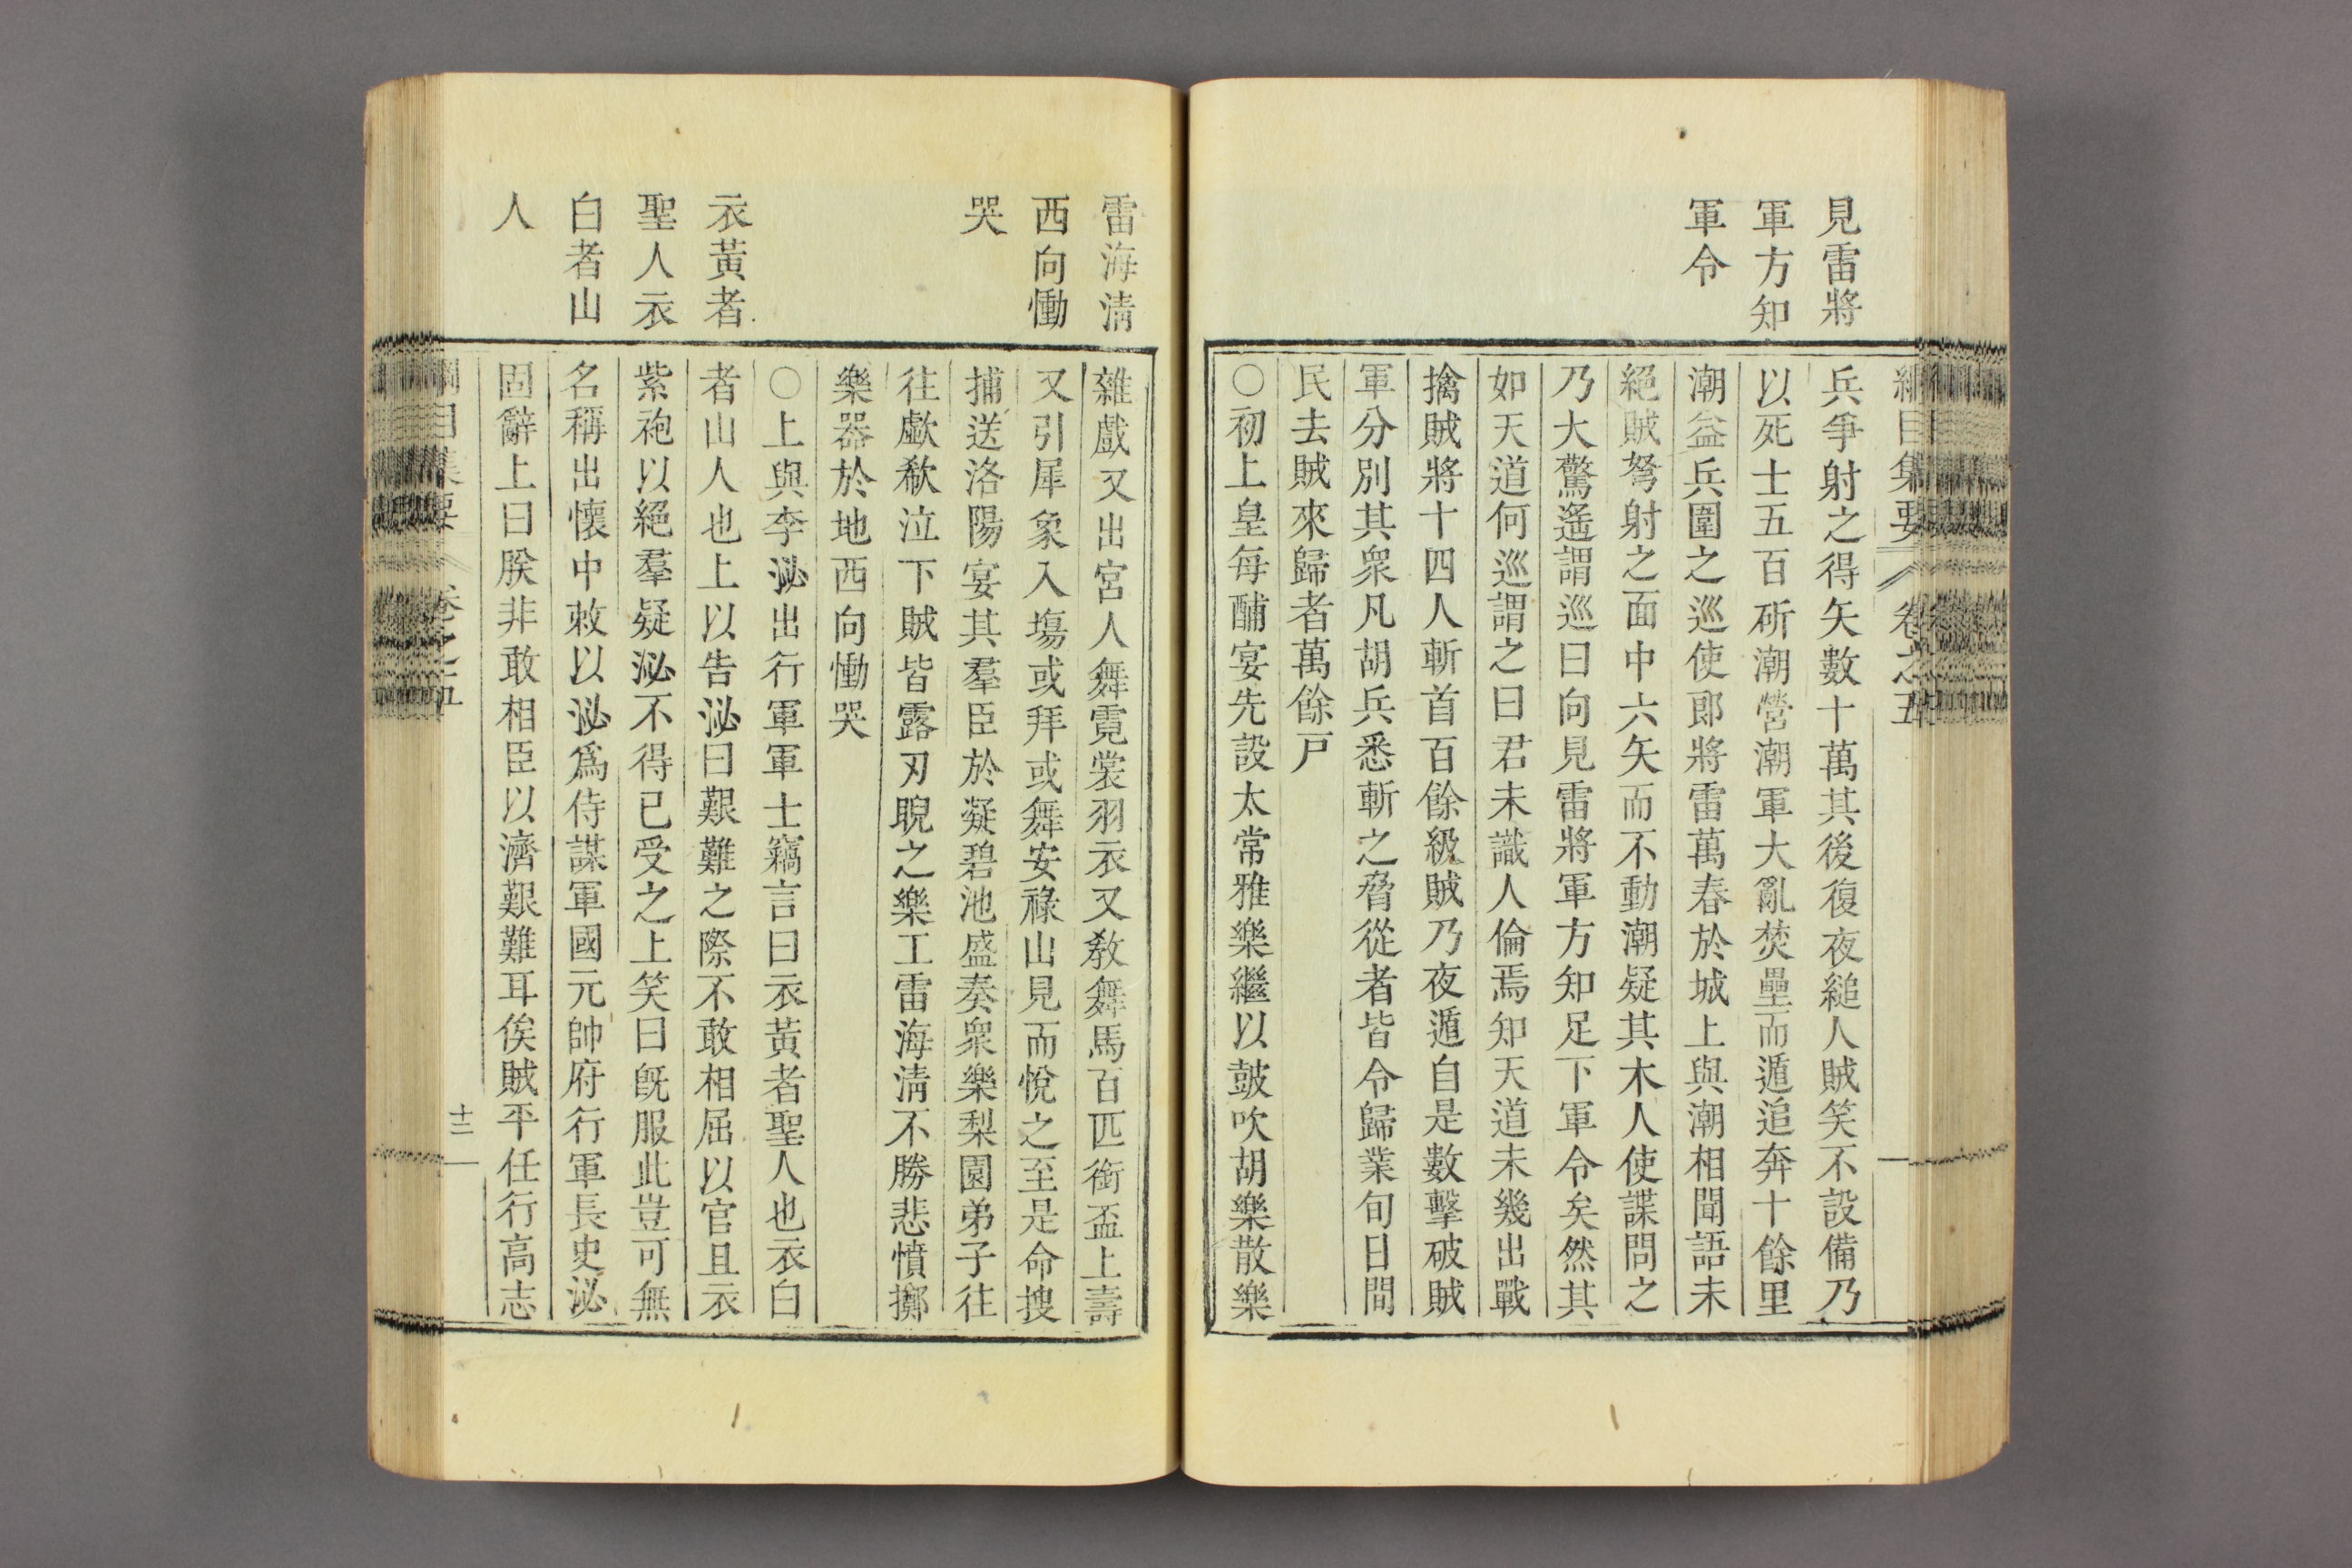 見雷將
軍方知
軍令
綱目集要 卷之五
兵爭射之得矢數十萬其後復夜縋人賊笑不設備乃
以死士五百斫潮營潮軍大亂焚壘而遁追奔十餘里
潮益兵圍之巡使郎將雷萬春於城上與潮相聞語未
絕賊弩射之面中六矢而不動潮疑其木人使諜問之
乃大驚遙謂巡曰向見雷將軍方知足下軍令矣然其
如天道何巡謂之曰君未識人倫焉知天道未幾出戰
擒賊將十四人斬首百餘級賊乃夜遁自是數擊破賊
軍分別其衆凡胡兵悉斬之脅從者皆令歸業旬日間
民去賊來歸者萬餘戸
○初上皇每酺宴先設太常雅樂繼以皷吹胡樂散樂
雷海淸
西向慟
哭
衣黃者
聖人衣
白者山
人
雜戲又出宮人舞霓裳羽衣又敎舞馬百匹銜盃上壽
又引犀象入塲或拜或舞安祿山見而悅之至是命搜
捕送洛陽宴其羣臣於凝碧池盛奏衆樂梨園弟子往
往歔欷泣下賊皆露刃睨之樂工雷海淸不勝悲憤擲
樂器於地西向慟哭
○上與李泌出行軍軍士竊言曰衣黃者聖人也衣白
者山人也上以告泌曰艱難之際不敢相屈以官且衣
紫袍以絕羣疑泌不得已受之上笑曰旣服此豈可無
名稱出懷中敕以泌爲侍謀軍國元帥府行軍長史泌
固辭上曰朕非敢相臣以濟艱難耳俟賊平任行高志
綱目集要 卷之五
十二